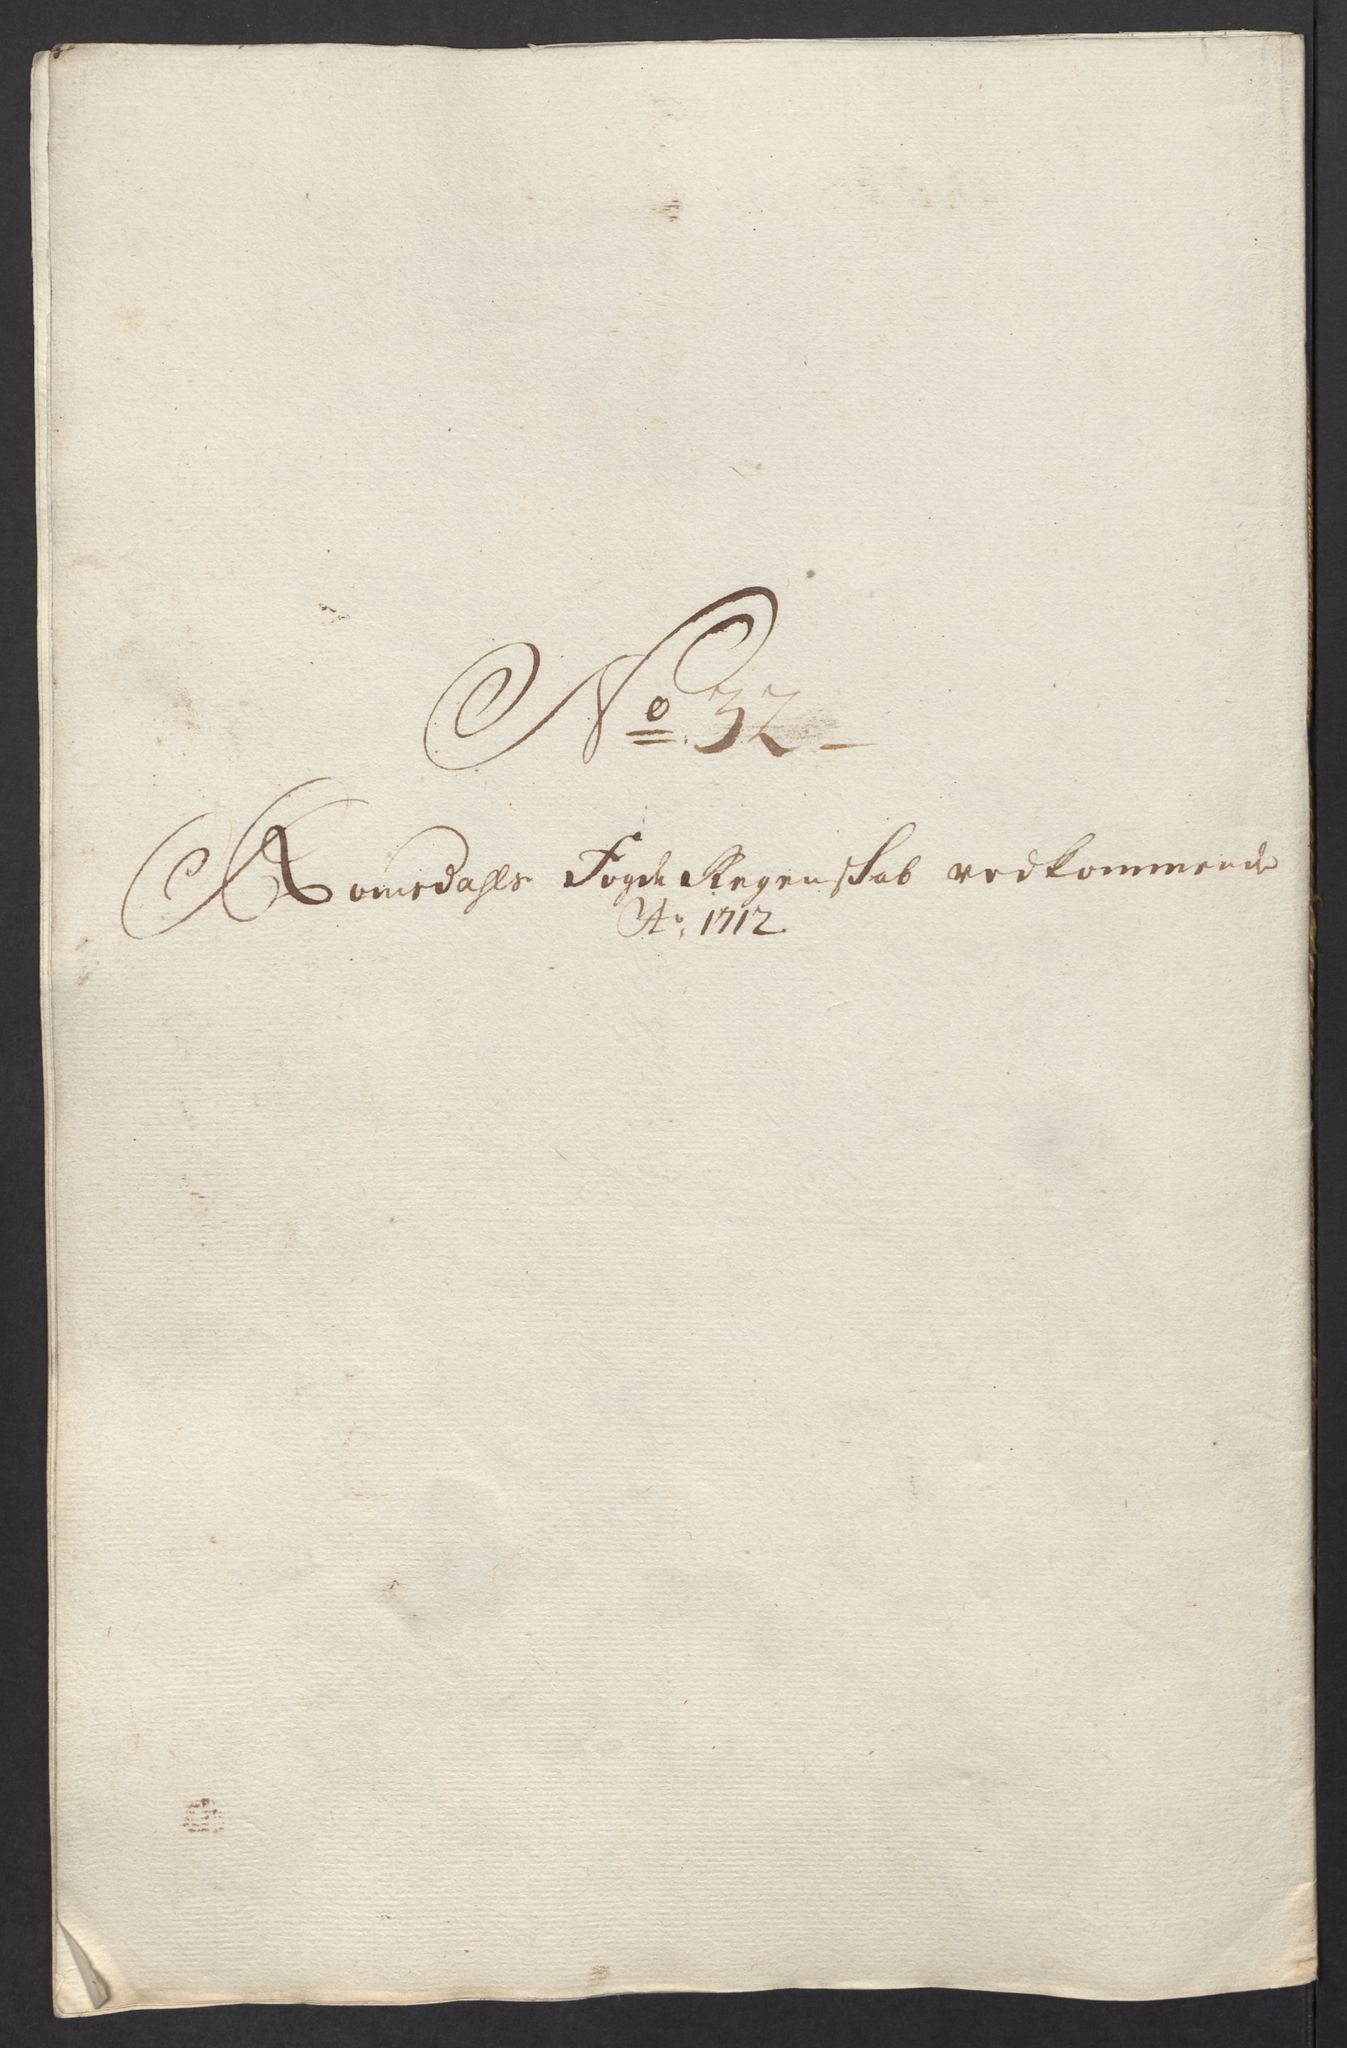 No. 32
Romsdahls Fogde Regenskab vedkommende
Ao. 1712.